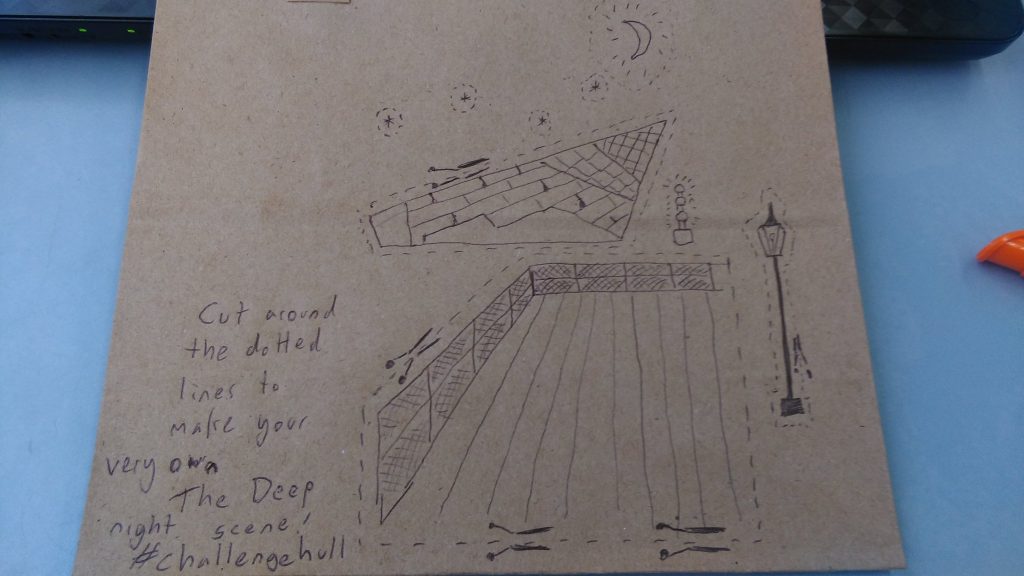 Cut around
the dotted
lines to
make your
very own
The Deep
night scene!
#challengehull